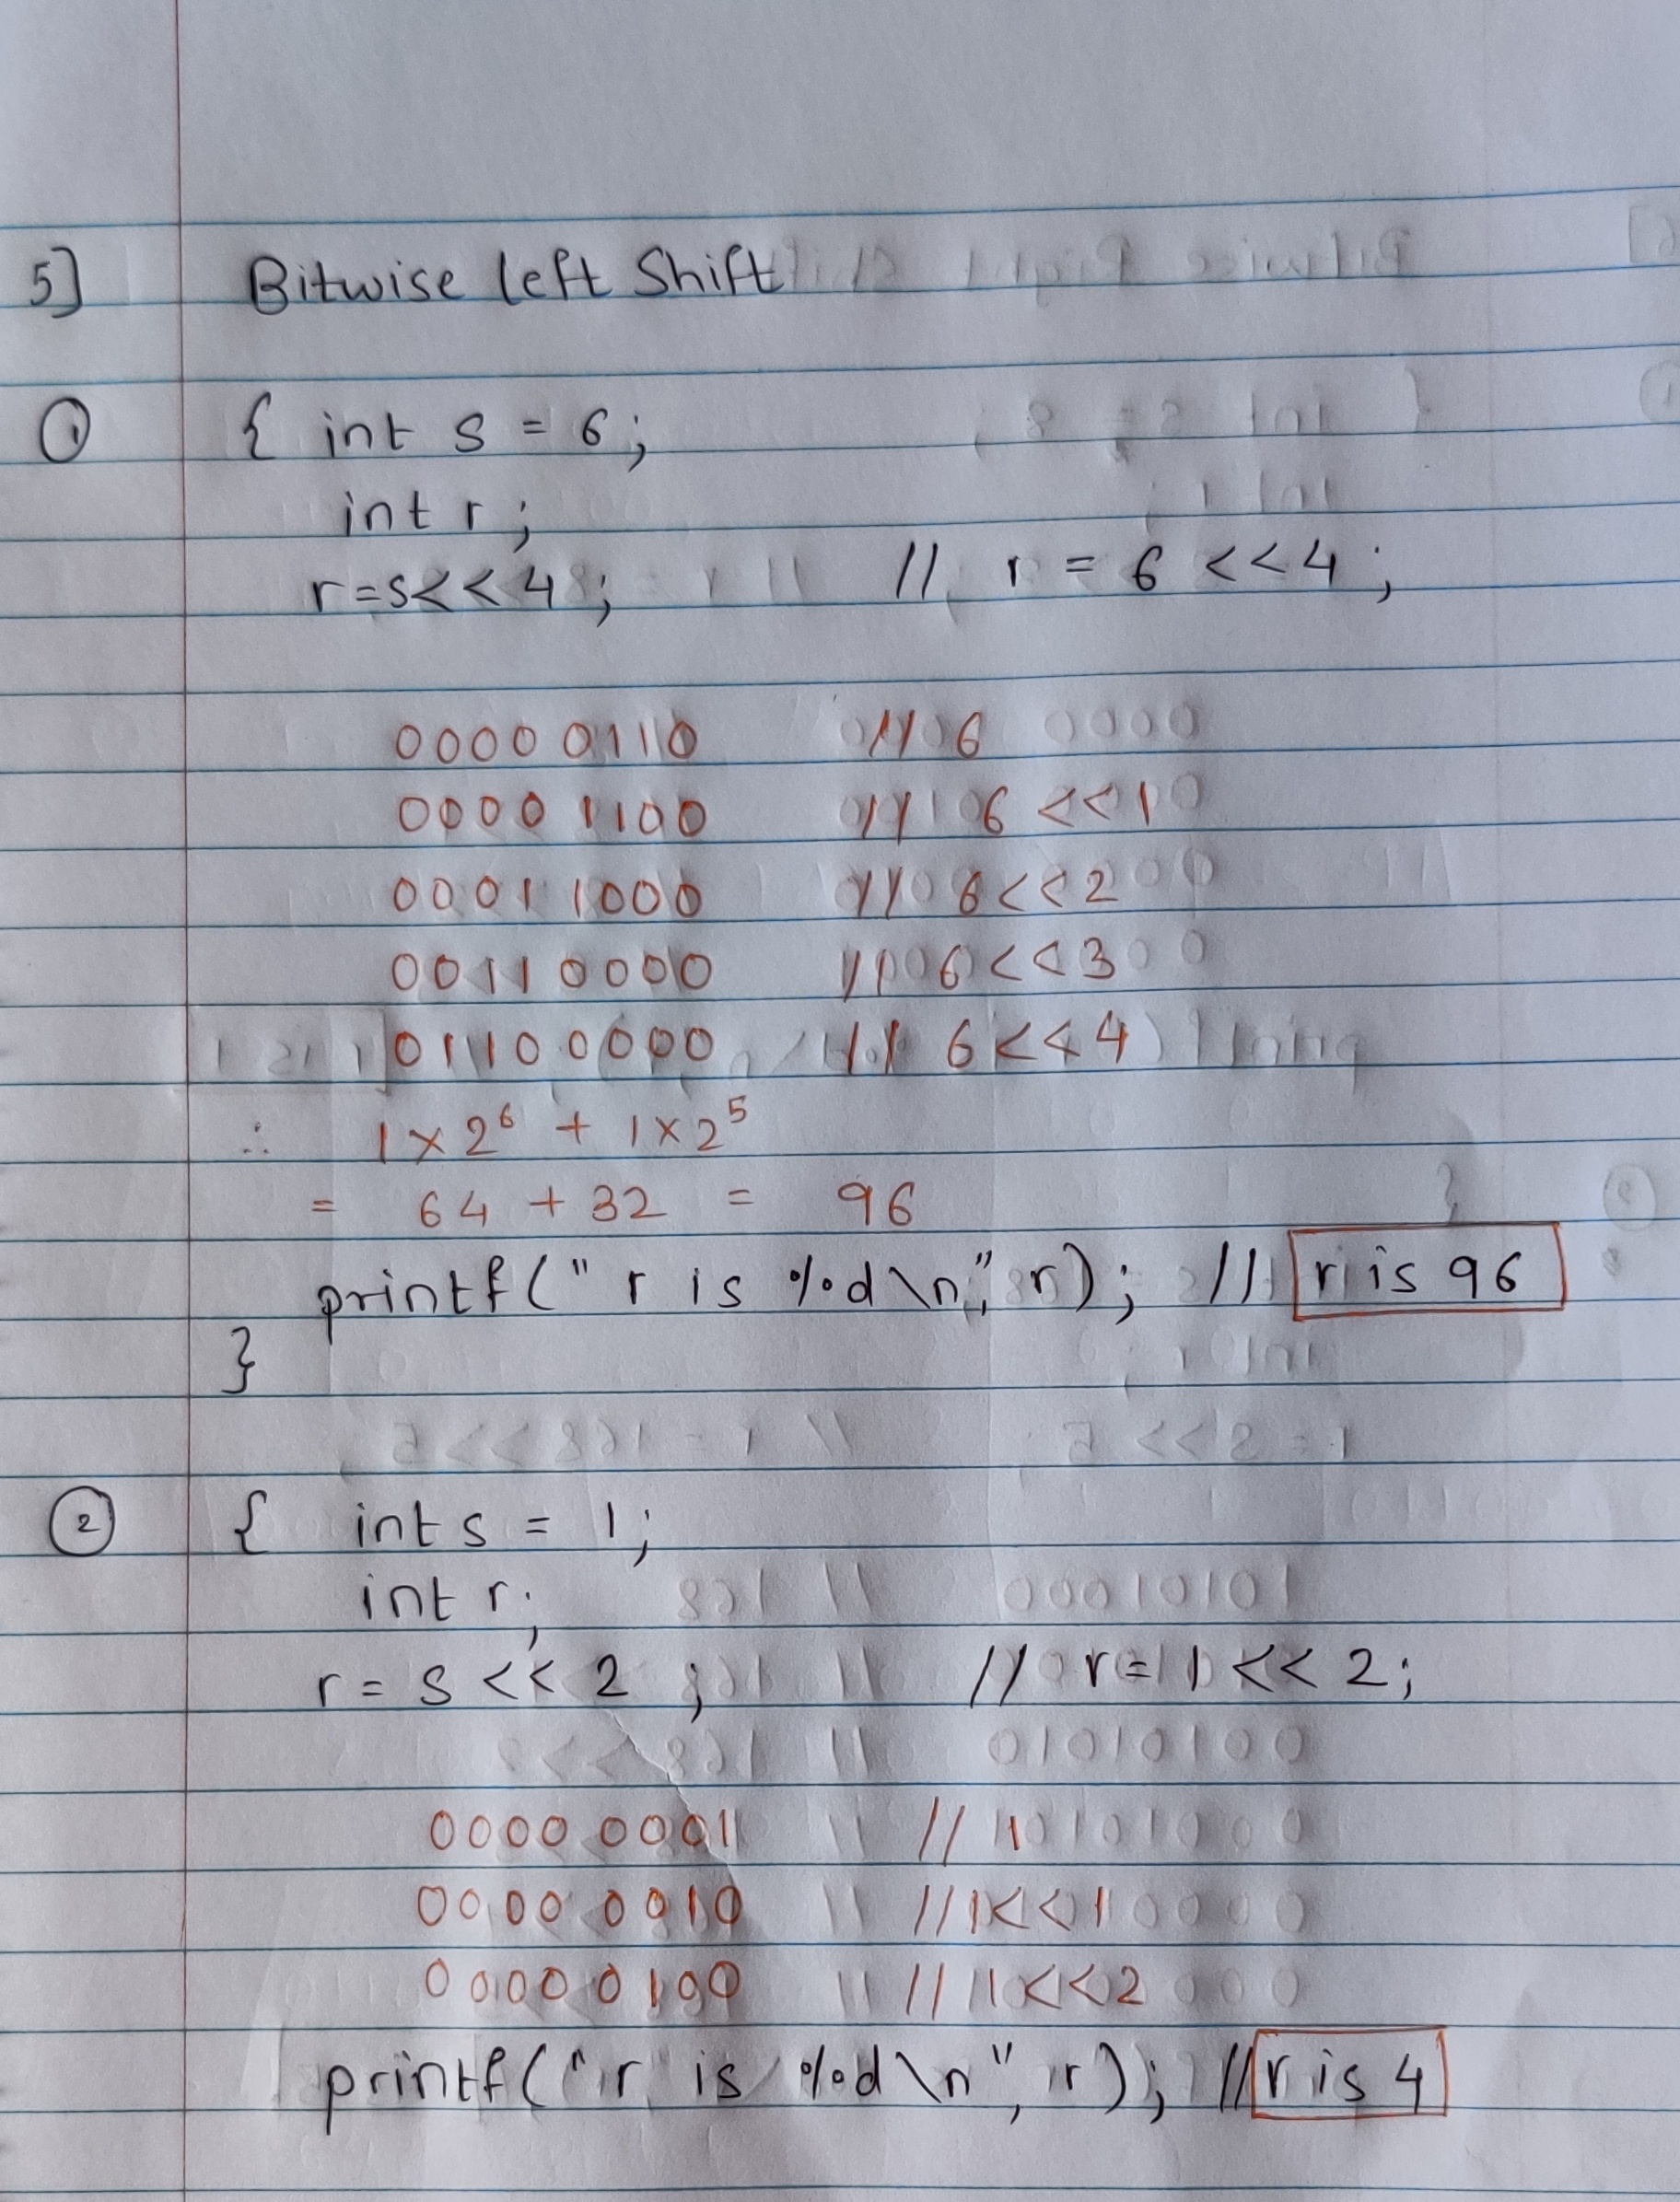 5] Bitwise left Shift
① { int s = 6;
int r;
r=s<<4; // r = 6 <<4;
0000 0110 // 6
0000 1100 // 6 <<1
0001 1000 // 6<<2
0011 0000 // 6<<3
0110 0000 // 6<<4
∴ 1×2⁶ + 1×2⁵
= 64 + 32 = 96
printf(" r is %d\n", r); // r is 96
}
② { int s = 1;
int r;
r = s << 2 ; // r=1<< 2;
0000 0001 // 1
0000 0010 // 1<<1
0000 0100 // 1<<2
printf("r is %d\n", r); // r is 4